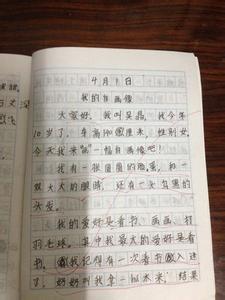 4月1日
我的自画像
大家好，我叫吴晶，我今年
10岁了，身高 厘米，性别女，
今天我来 一幅自画像吧！
我有一张圆圆的脸蛋，和一
双大大的眼睛，还有一头乌黑的
头发。
我的爱好是看书、画画、打
羽毛球，其中我最大的爱好是看
书。我记得有一次看书 入迷
了，妈妈叫我拿一 米，结果